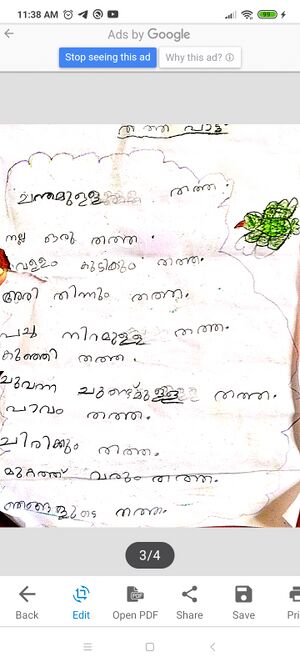 11:38 AM
99
Ads by Google
Stop seeing this ad
Why this ad?
തത്ത പാട്ട്
ചന്തമുള്ള തത്ത.
നല്ല ഒരു തത്ത.
വെള്ളം കുടിക്കും തത്ത.
അരി തിന്നും തത്ത.
പച്ച നിറമുള്ള തത്ത.
കുഞ്ഞി തത്ത.
ചുവന്ന ചുണ്ടുമുള്ള തത്ത.
പാവം തത്ത.
ചിരിക്കും തത്ത.
മുറ്റത്ത് വരും തത്ത.
ഞങ്ങളുടെ തത്ത.
3/4
Back
Edit
Open PDF
Share
Save
Pri